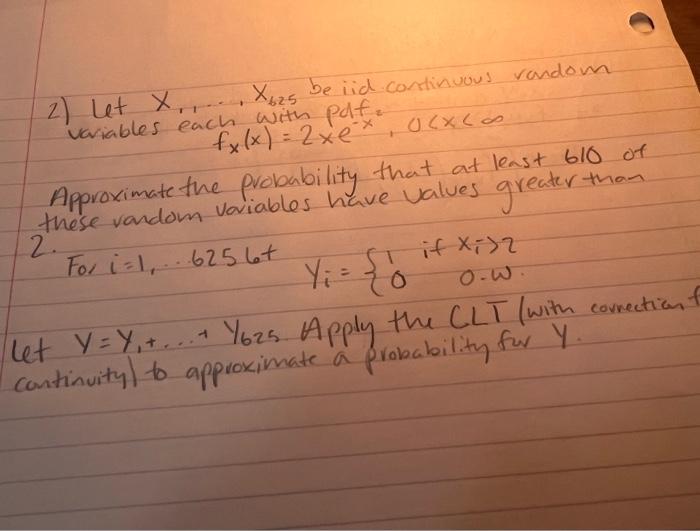 2) Let X₁, ..., X₆₂₅ be iid continuous random
variables each with pdf:
fₓ(x) = 2xe^-x², 0<x<∞
Approximate the probability that at least 610 of
these random variables have values greater than
2.
For i=1, ...625 let Yᵢ = { 1 if xᵢ>2
0 o.w.
Let Y = Y₁+...+ Y₆₂₅. Apply the CLT (with correction f
continuity) to approximate a probability for Y.